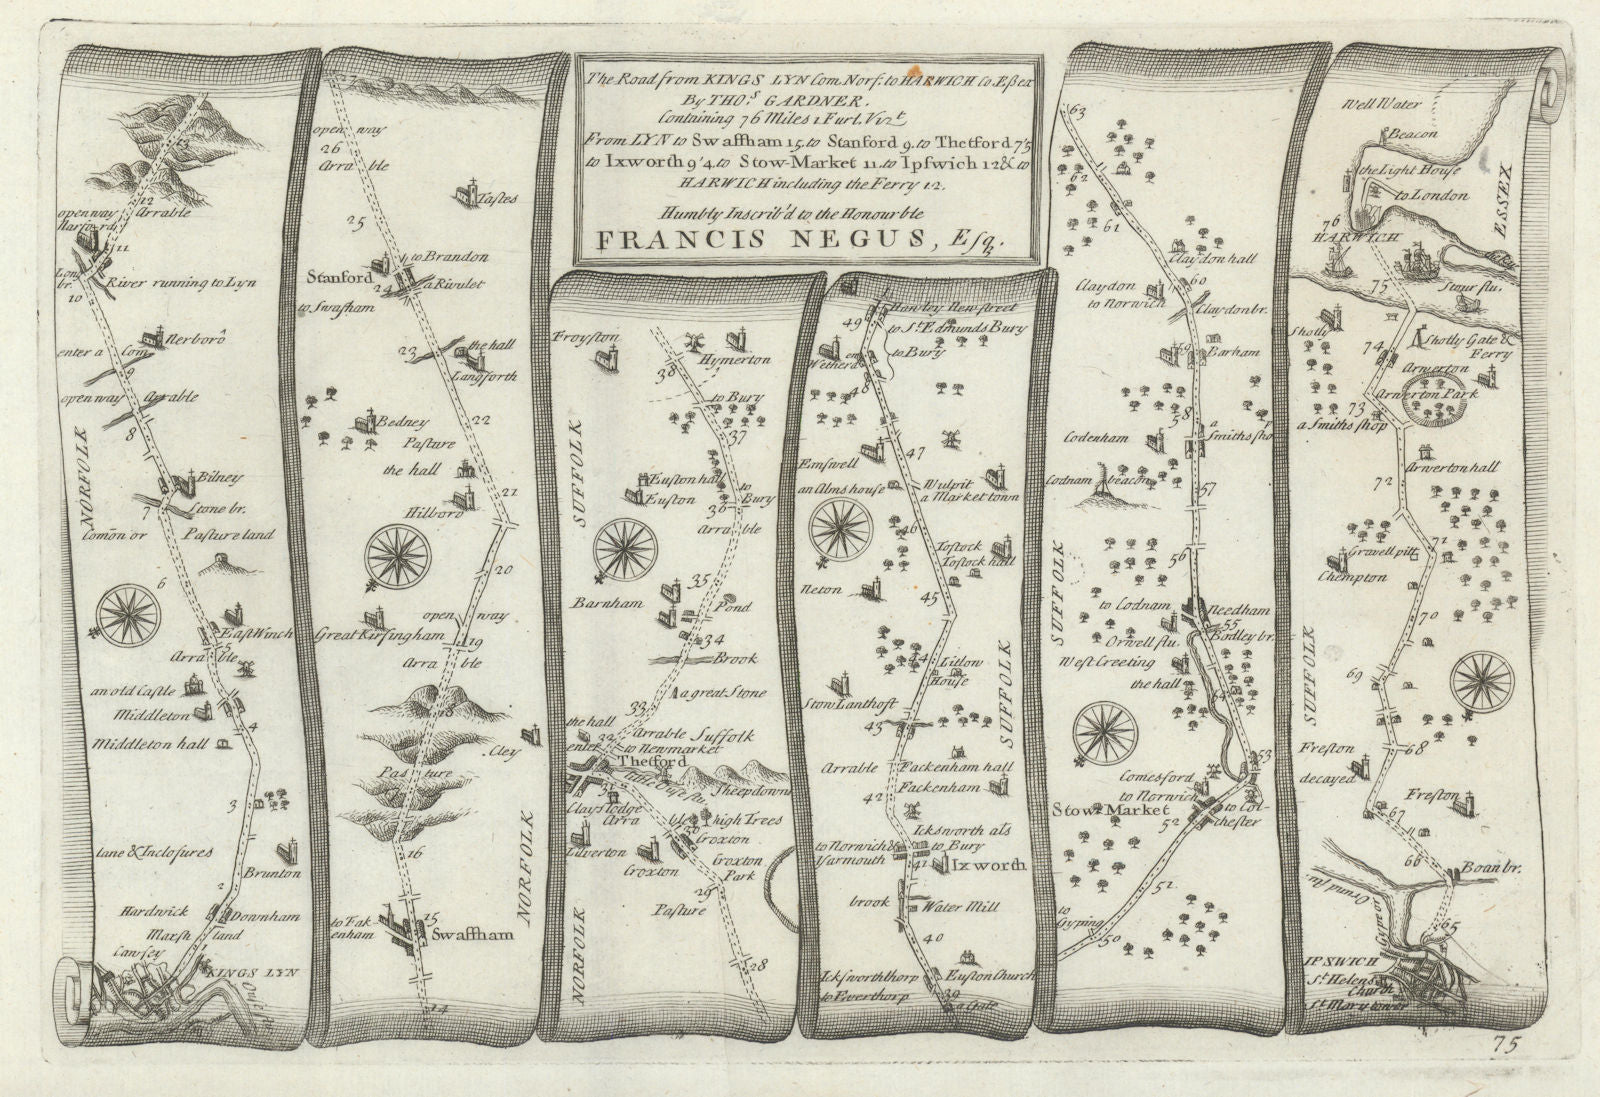 The Road from KINGS LYN Com. Norf. to HARWICH Co. Eßex
By THO.S GARDNER.
Containing 76 Miles 1 Furl. Vizt.
From LYN to Swaffham 15. to Stanford 9. to Thetford 7'5
to Ixworth 9'4. to Stow-Market 11. to Ipswich 12 & to
HARWICH including the Ferry 12.
Humbly Inscrib'd to the Honourble
FRANCIS NEGUS, Esq.
13
12
open way Arrable
Narford
11
Long br.
10
River running to Lyn
Nerborô
enter a Com
9
open way Arrable
8
NORFOLK
Bilney
7
Stone br.
Comōn or Pasture land
6
East Winch
5
Arrable
an old Castle
Middleton
4
Middleton hall
3
lane & Inclosures
Brunton
2
Hardwick
Downham
Marsh land
Cawsey
1
KINGS LYN
Ouse flu.
27
open way
26
Arrable
Tastes
25
Stanford
to Brandon
24
a Rivulet
to Swafham
23
the hall
Langforth
22
Bedney
Pasture
the hall
21
Hilboro
20
open way
Great Kirsingham
19
Arrable
18
Cley
Pasture
16
NORFOLK
to Fakenham
15
Swaffham
14
Froyston
38
Hymerton
to Bury
37
SUFFOLK
Euston hall
Euston
to Bury
36
Arrable
35
Barnham
Pond
34
Brook
a great Stone
33
Arrable Suffolk
the hall
32
enter
to Newmarket
Thetford
little Ouse flu.
Sheep downs
31
Clays Lodge
Arrable
high Trees
30
Croxton
Lilverton
Croxton
Croxton Park
29
Pasture
NORFOLK
28
Hawley New street
49
to St. Edmunds Bury
to Bury
Wetherd
48
47
Emswell
Wulpit
a Market town
an Alms house
46
Tostock
Tostock hall
Neton
45
44
Litlow House
Stow Lanthost
43
SUFFOLK
Arrable
Fackenham hall
42
Fackenham
Icksworth als
to Norwich & Yarmouth
to Bury
41
Ixworth
brook
Water Mill
40
Icksworththorp
Euston Church
to Everthorp
39
a Gate
63
62
61
Claydon hall
60
Claydon
to Norwich
Claydon br.
59
Barham
58
a Smiths shop
Codenham
Codnam beacon
57
56
SUFFOLK
to Codnam
Needham
55
Orwell flu.
Bodley br.
West Creeting
the hall
54
53
Comesford
to Norwich
Stow-Market
to Colchester
52
51
to Gyping
50
Well Water
Beacon
the Light House
to London
ESSEX
76
HARWICH
75
Stour flu.
Shotly
Shotly Gate & Ferry
74
Arwerton
Arwerton Park
73
a Smiths shop
Arwerton hall
72
71
Gravell pitt
Chempton
70
69
SUFFOLK
68
Freston decayed
Freston
67
66
Boan br.
Orwell flu.
65
Gypner
IPSWICH
St. Helens Church
St. Mary tower
75